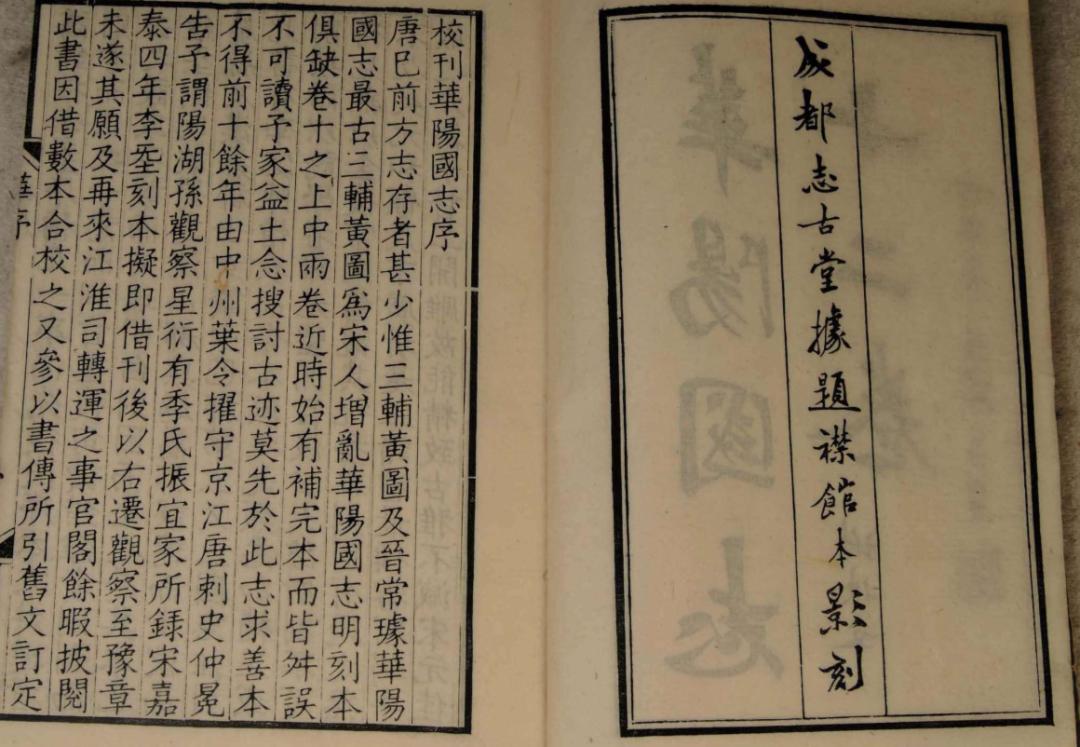 成都志古堂據題襟館本影刻
校刊華陽國志序
唐已前方志存者甚少惟三輔黃圖及晉常璩華陽
國志最古三輔黃圖爲宋人增亂華陽國志明刻本
俱缺卷十之上中兩卷近時始有補完本而皆舛誤
不可讀予家益土念搜討古迹莫先於此志求善本
不得前十餘年由中州葉令擢守京江唐刺史仲冕
告予謂陽湖孫觀察星衍有季氏振宜家所錄宋嘉
泰四年李𡊮刻本擬即借刊後以右遷觀察至豫章
未遂其願及再來江淮司轉運之事官閣餘暇披閱
此書因借數本合校之又參以書傳所引舊文訂定
華序